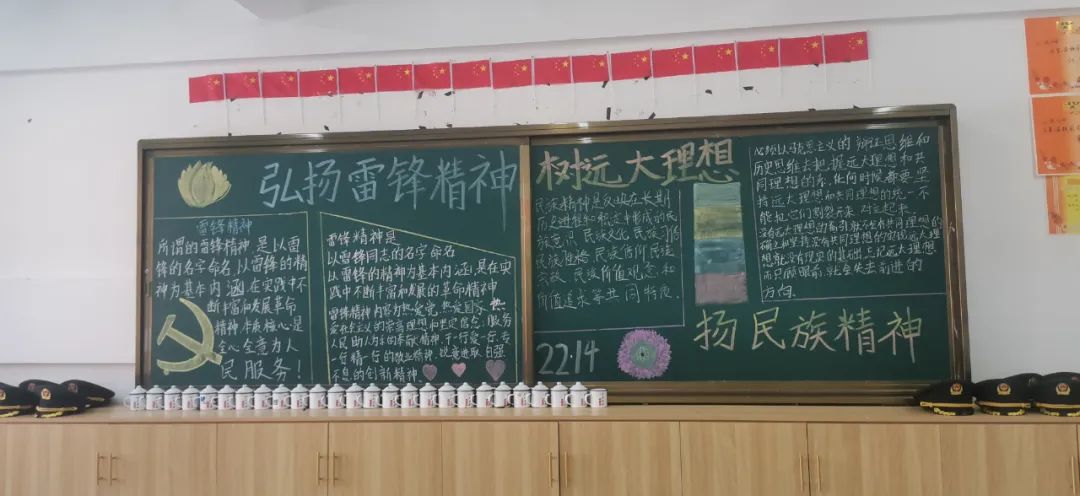 弘扬雷锋精神
雷锋精神
所谓的雷锋精神是以雷
锋的名字命名,以雷锋的精
神为基本内涵在实践中不
断丰富和发展革命
精神本质核心是
全心全意为人
民服务!
雷锋精神是
以雷锋同志的名字命名
以雷锋的精神为基本内涵,是在实
践中不断丰富和发展的革命精神
雷锋精神内容为热爱党、热爱国家、热
爱社会主义的崇高理想和坚定信念、服务
人民助人为乐的奉献精神、干一行爱一行、专
一行精一行的敬业精神、锐意进取自强
不息的创新精神
树远大理想
民族精神是反映在长期
历史进程和积淀中形成的民
族意识、民族文化、民族习俗
民族性格、民族信仰、民族
宗教、民族价值观念和
价值追求等共同特质
22.14
必须以马克思主义的辩证思维和
历史思维去把握远大理想和共
同理想的关系,任何时候都要坚
持远大理想和共同理想的统一、不
能把它们割裂开来、对立起来
没有远大理想的
就会失去前进的
方向
扬民族精神